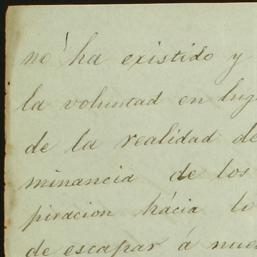 no ha existido y
la voluntad en lug
de la realidad de
minancia de los
piracion hácia lo
de escapar á nues